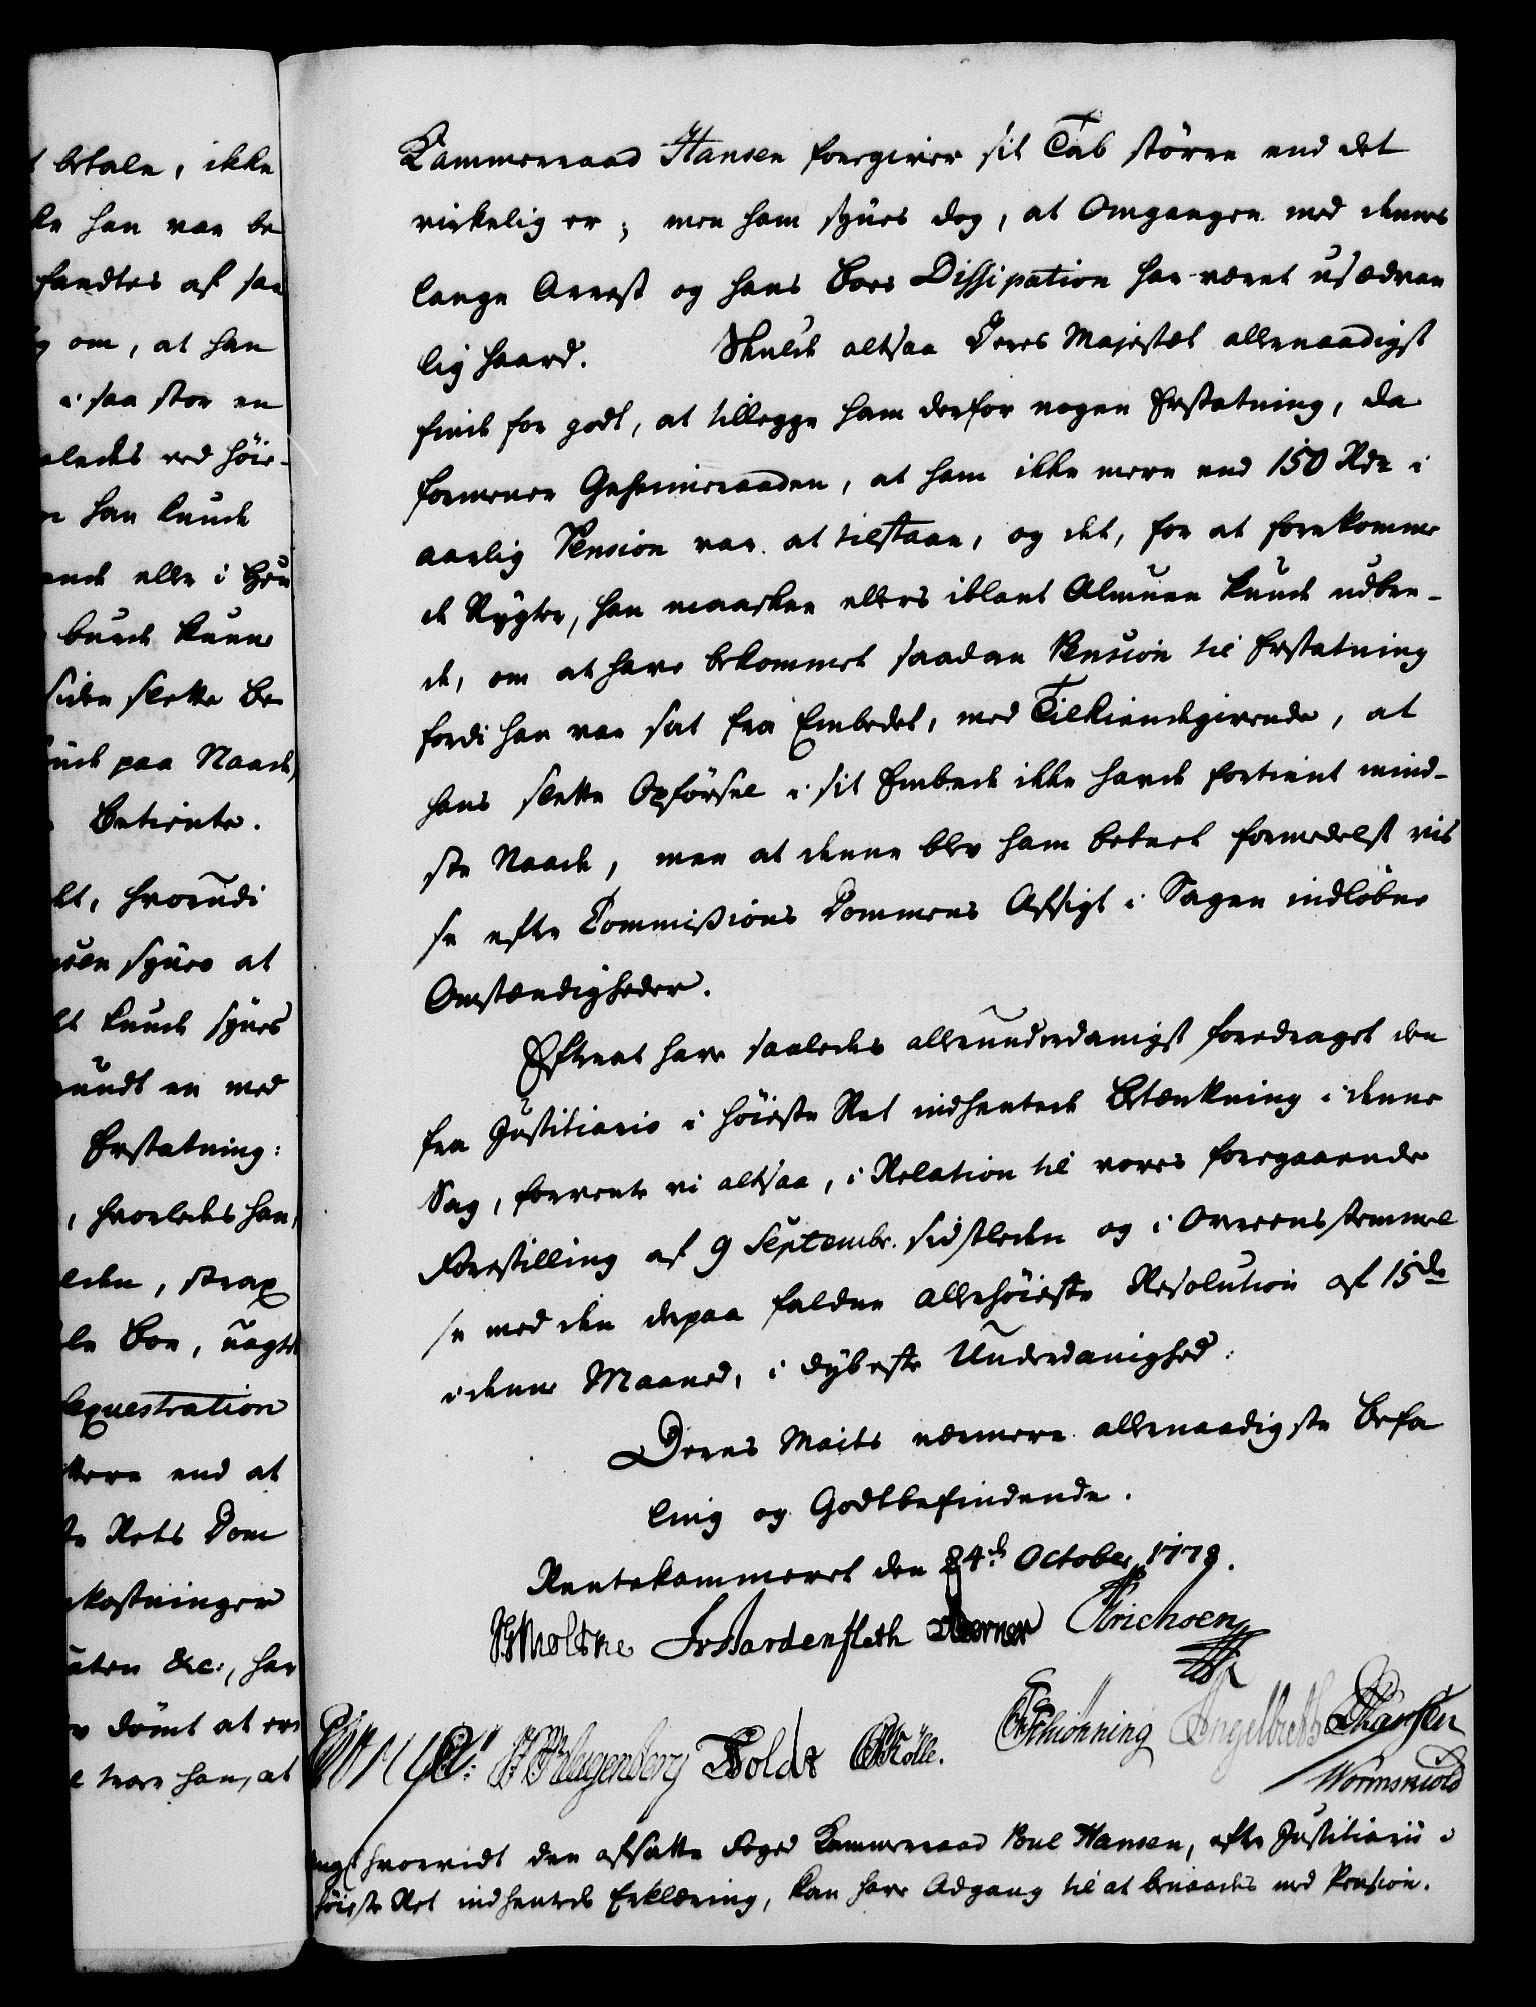 t betale, ikke
ke han var be
fandtes af saa
g om, at han
i saa stor en
aledes ved höie-
han kunde
ende eller i Hen
burde kunne
siden slette Be
paa Naade,
Betiente.
et, hvorudi
synes at
et kunde synes
grundt en med
Erstatning:
, hvorledes han,
eden, strax
le Boe, uagt
Sequestration
ere end at
te Rets Dom
ekostninger
&c:, har
v dömt at er
troer han, at
Kammerraad Hansen foregiver sit Tab större end det
virkelig er; men ham synes dog, at Omgangen med dennes
lange Arrest og hans Boes Dissipation har været usædvan
lig haard. Skulde altsaa Deres Majestæt allernaadigst
finde for godt, at tillegge ham derfor nogen Erstatning, da
formener Geheimeraaden, at ham ikke mere end 150 Rdr i
aarlig Pension var at tilstaae, og det, for at forekomme
de Rygter, han maaskee ellers iblant Almuen kunde udbre-
de, om at have bekommet saadan Pension til Erstatning
fordi han var sat fra Embedet, med Tilkiendegivende, at
hans slette Opförsel i sit Embede ikke havde fortient mind-
ste Naade, men at denne blev ham beteet formedelst vis
se efter Commissions Dommens Afsigt i Sagen indlöbne
Omstændigheder.
Efterat have saaledes allerunderdanigst foredraget den
fra Justitiario i höieste Ret indhentede Betænkning i denne
Sag, forvente vi altsaa, i Relation til vores foregaaende
Forestilling af 9 Septembr. sidstleden og i Overeensstemmel
se med den derpaa faldne allerhöieste Resolution af 15de
i denne Maaned, i dybeste Underdanighed:
Deres Maits nærmere allernaadigste Befa
ling og Godtbefindende.
Rentekammeret den 24de October 1778.
Moltke Hardenfleth Berner Erichsen
Klagenberg Holdt Rölle. Schiönning Engelbreth Karsten
Wormskiold
angt hvorvidt den afsatte Foged Kammerraad Poul Hansen, efter Justitiarii i
höieste Ret indhentede Erklæring, kan have Adgang til at benaades med Pension.